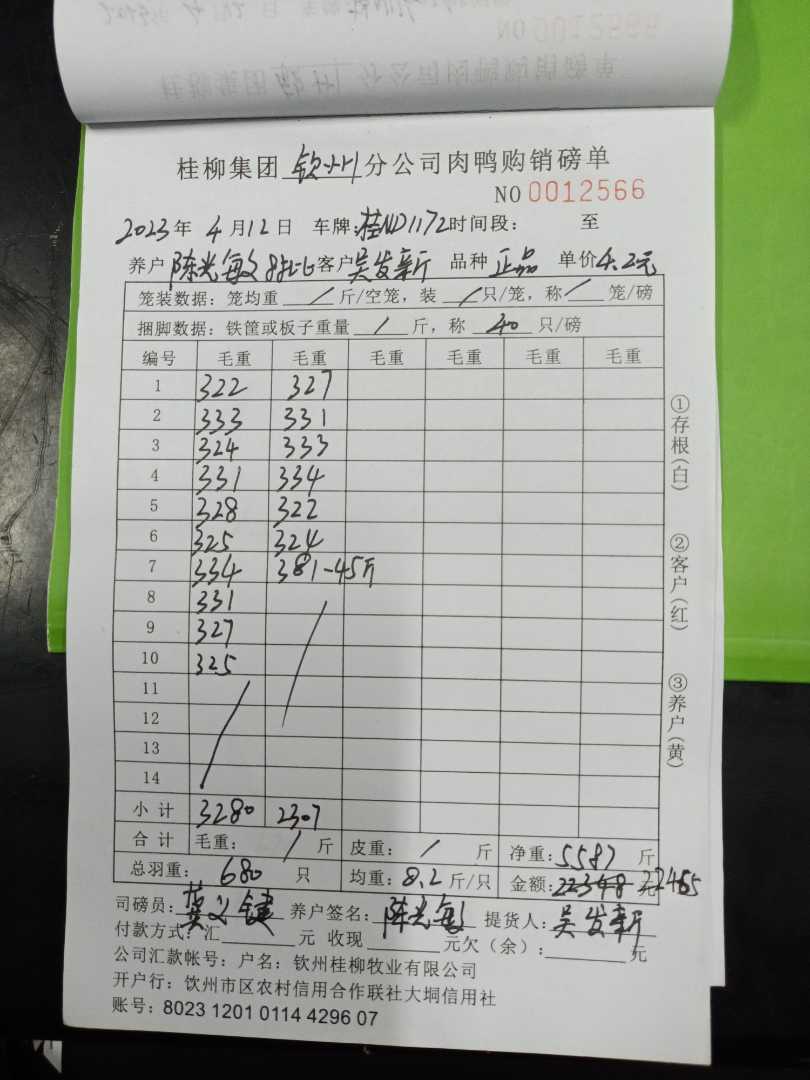 桂柳集团钦州分公司肉鸭购销磅单
NO 0012566
2023年4月12日 车牌:桂ND1172时间段: 至
养户陈光敏 客户吴发新 品种正品 单价4.2元
笼装数据:笼均重/斤/空笼,装/只/笼,称/笼/磅
捆脚数据:铁筐或板子重量/斤,称40只/磅
编号 毛重 毛重 毛重 毛重 毛重 毛重
1 322 327
2 333 331
3 324 333
4 331 334
5 328 322
6 325 324
7 334 381-45斤
8 331
9 327
10 325
11
12
13
14
小计 3280 2307
合计 毛重:/斤 皮重:/斤 净重:5587斤
总羽重:680只 均重:8.2斤/只 金额:22348元
司磅员: 养户签名:陈光敏 提货人:吴发新
付款方式:汇 元 收现 元欠(余): 元
公司汇款帐号:户名:钦州桂柳牧业有限公司
开户行:钦州市区农村信用合作联社大垌信用社
账号:8023 1201 0114 4296 07
①存根(白)
②客户(红)
③养户(黄)